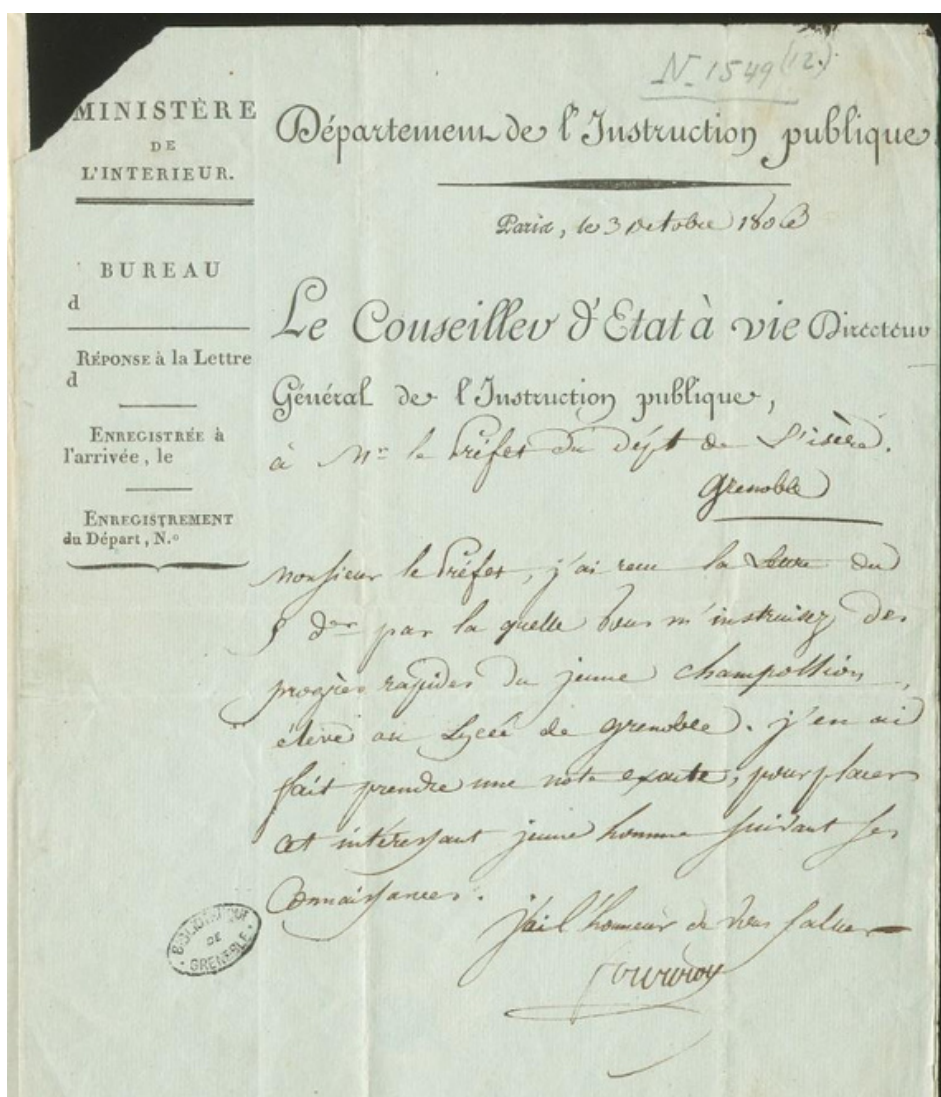 N. 1549 (12.)
MINISTÈRE
DE
L'INTERIEUR.
BUREAU
d
RÉPONSE à la Lettre
d
ENREGISTRÉE à
l'arrivée, le
ENREGISTREMENT
du Départ, N.o
Département de l'Instruction publique
Paris, le 3 octobre 1806
Le Conseiller d'Etat à vie Directeur
Général de l'Instruction publique,
à Mr. le Préfet du Dépt de L'isère.
Grenoble
Monsieur le Préfet, j'ai reçu la Lettre du
der par la quelle vous m'instruisez des
progrès rapides du jeune champollion,
élève au Lycée de grenoble. j'en ai
fait prendre une note exacte, pour placer
cet intéressant jeune homme suivant ses
Connaissances.
j'ai l'honneur de vous saluer
fourcroy
BIBLIOTHÈQUE
DE
GRENOBLE